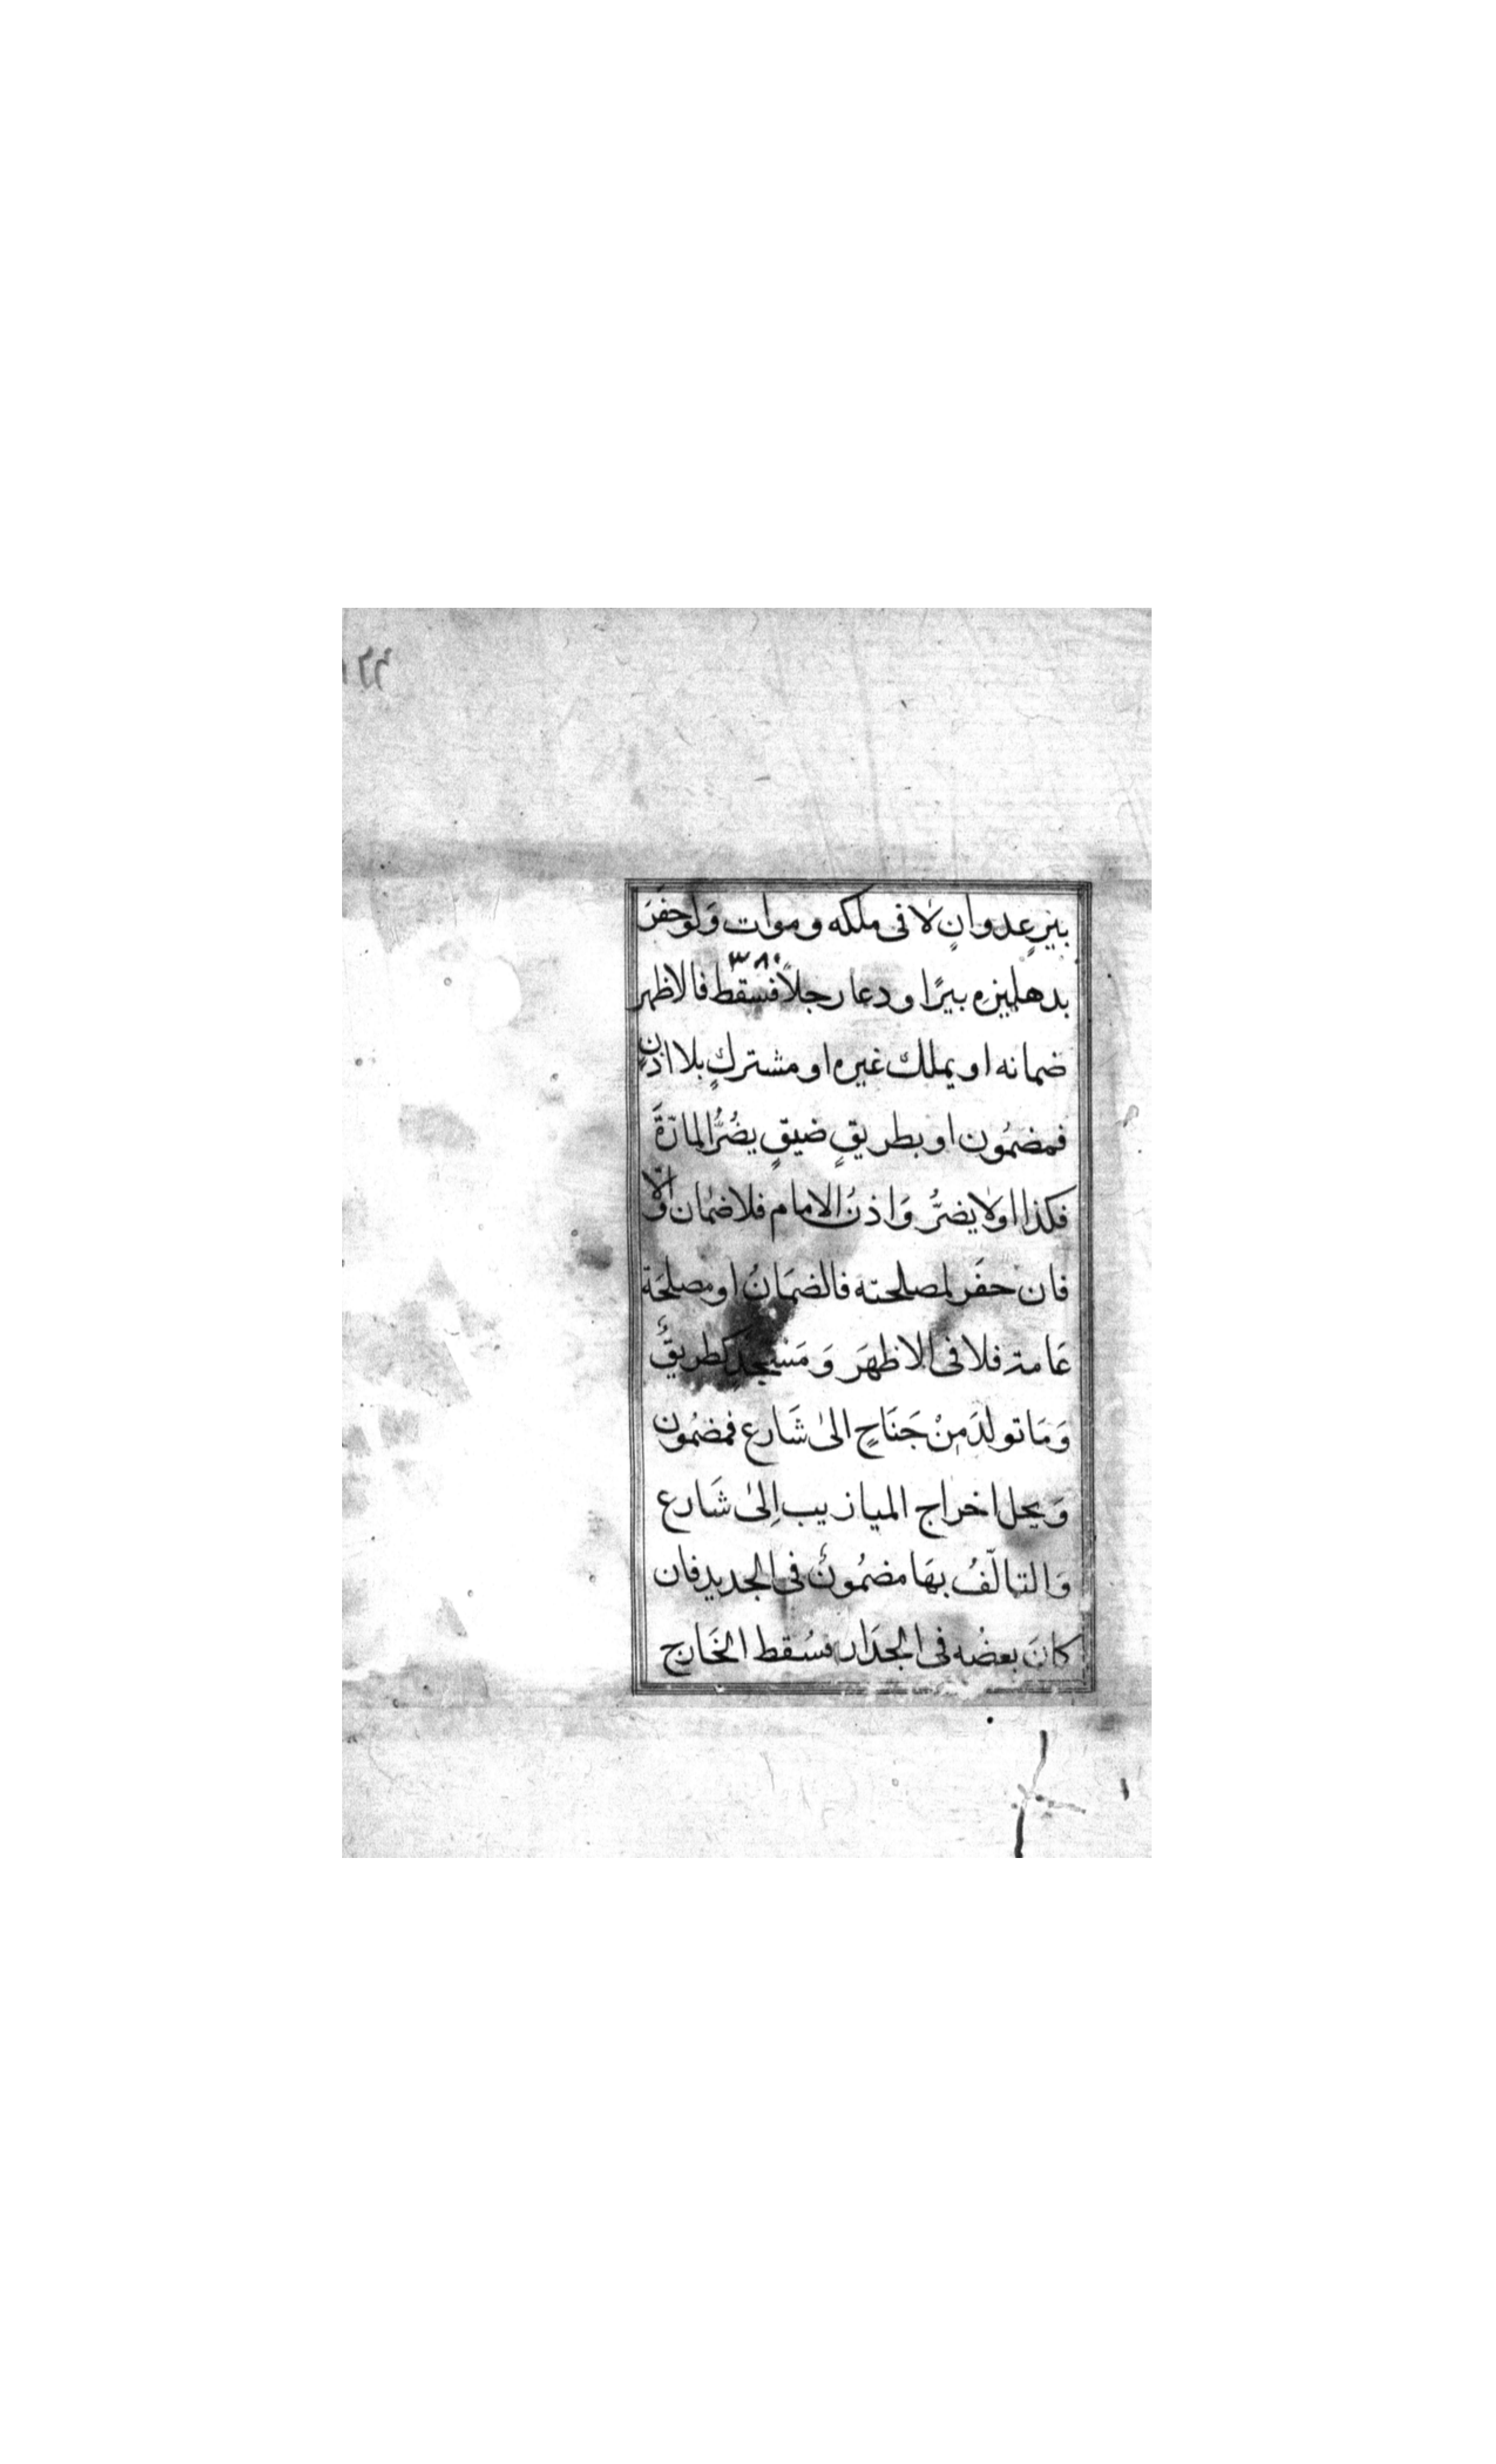 بيرِ عدوانٍ لا فى ملكه وموات وَلوحفَرَ
٣٨٠
بدهليزه بيرًا ودعا رجلاً فسَقط فالاظهر
ضمانه او بملك غيره او مشتركٍ بلا اذنٍ
فمضمُون او بطريقٍ ضيقٍ يضُرُّ المارّةَ
فكذا اولا يضرُّ وَاذنُ الامام فلا ضمان وَالّا
فان حفَر لمصلحته فالضمَانُ او مصلحَة
عَامة فلا فى الاظهَر وَمَسْجدٍ كطريقٍ
وَمَا تولدَ مِنْ جَنَاحٍ الىٰ شَارع فمضمُون
وَيحل اخراج الميازيب اِلىٰ شَارع
وَالتالّفُ بهَا مضمُونٌ فى الجديد فان
كانَ بعضُه فى الجدَار فسُقط الخَارج